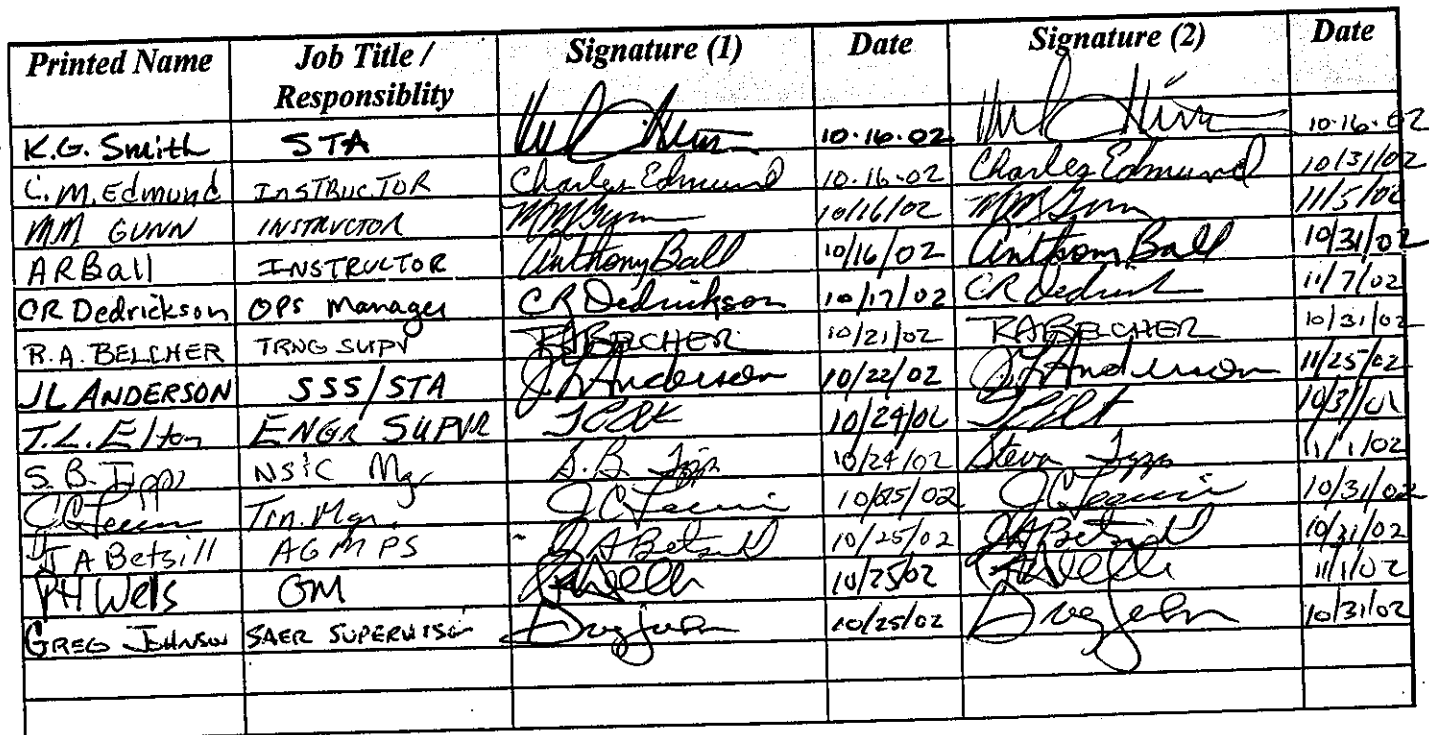 Printed Name Job Title / Responsiblity Signature (1) Date Signature (2) Date
K.G. Smith STA 10-16-02 10-16-02
C.M. Edmund INSTRUCTOR Charles Edmund 10-16-02 Charles Edmund 10/31/02
MM GUNN INSTRUCTOR MM Gunn 10/16/02 MM Gunn 11/5/02
ARBall INSTRUCTOR Anthony Ball 10/16/02 Anthony Ball 10/31/02
CR Dedrickson OPS Manager CR Dedrickson 10/17/02 CR 11/7/02
R.A. BELCHER TRNG SUPV RABELCHER 10/21/02 RABELCHER 10/31/02
JL ANDERSON SSS/STA JL Anderson 10/22/02 JL Anderson 11/25/02
T.L. Elton ENGR SUPVR 10/24/02
S.B. Tipps NS&C Mgr S.B. 10/24/02 Steven 11/1/02
Trn. Mgr. 10/25/02 10/31/02
JA Betsill AGMPS JA Betsill 10/25/02 JA Betsill 10/31/02
PH Wells GM 10/25/02 11/1/02
GREG JOHNSON SAER SUPERVISOR 10/25/02 10/31/02